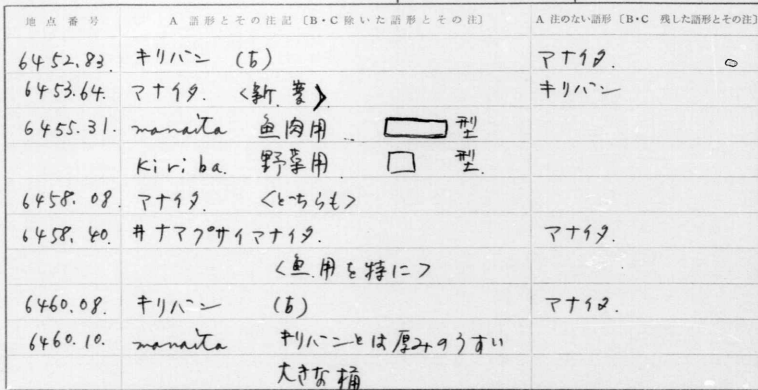 地点番号 A 語形とその注記〔B・C 除いた語形とその注〕 A 注のない語形〔B・C 残した語形とその注〕
6452.83. キリバン (古) マナイタ.
6453.64. マナイタ. <新、><br>キリバン
6455.31. manaita 魚肉用 型
kiriba. 野菜用 型
6458.08. マナイタ. <どちらも>
6458.40. #ナマプサイマナイタ. マナイタ.
<魚用を特に>
6460.08. キリバン (古) マナイタ.
6460.10. manaita キリバンとは厚みのうすい
大きな桶